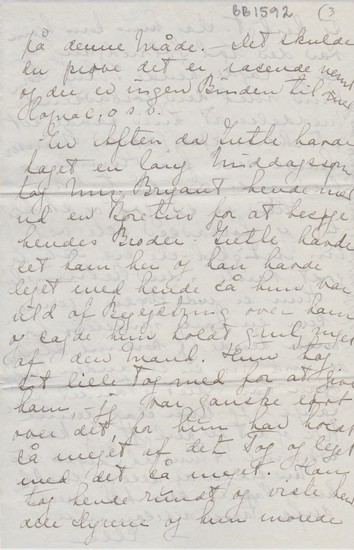 BB1592 (3
på denne Måde. – Det skulde
en prøve det er rasende nemt
og der er ingen Bunden til
Cognac, o.s.v.
En Aften da Luth havde
taget en lang Middagssøvn
tog Mrs. Bryant hende med
ud en for at besøge
hendes Broder. havde
set ham her og han havde
leget med hende så hun var
vild af Begejstring over ham
og sagde hun holdt
af den Mand. Hun tog
sit lille Tog med for at give
ham – jeg var ganske
over det for hun har holdt
så meget af det Tog og leget
med det så meget. Han
tog hende rundt og viste hende
alle Dyrene og hun morede